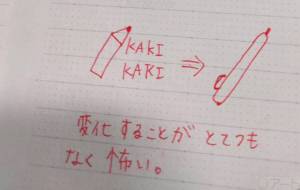 KAKI
KAKI
⇒
変化することがとてつも
なく怖い。